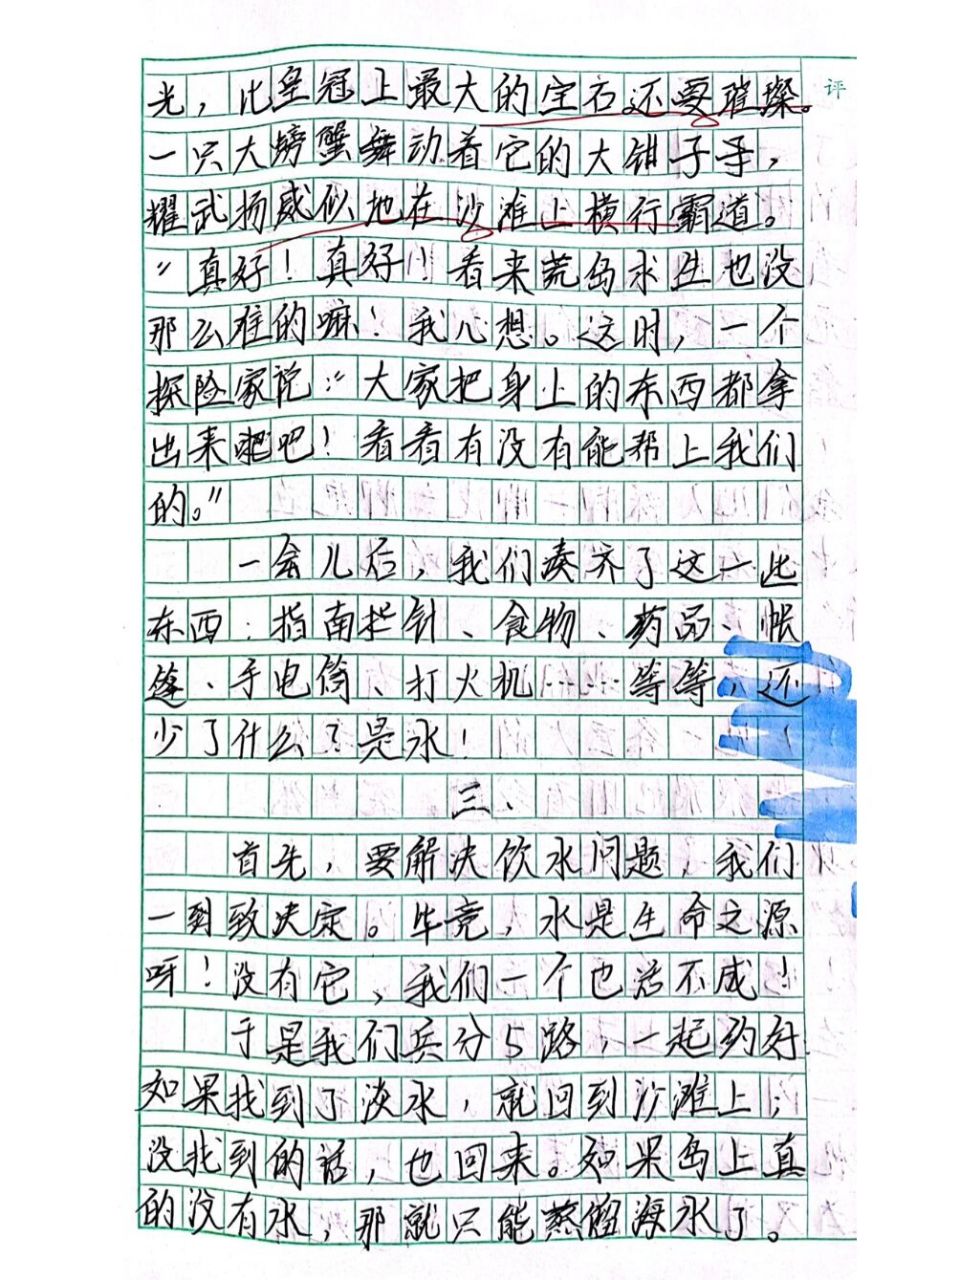 光，比皇冠上最大的宝石还要璀璨。
评
一只大螃蟹舞动着它的大钳子手，
耀武扬威似地在沙滩上横行霸道。
“真好！真好！看来荒岛求生也没
那么难的嘛！我心想。这时，一个
探险家说：“大家把身上的东西都拿
出来吧！看看有没有能帮上我们
的。”
一会儿后，我们凑齐了这一些
东西：指南针、食物、药品、帐
篷、手电筒、打火机……等等，还
少了什么？是水！
三、
首先，要解决饮水问题，我们
一致决定。毕竟，水是生命之源
呀！没有它，我们一个也活不成！
于是我们兵分5路，一起约好
如果找到了淡水，就回到沙滩上；
没找到的话，也回来。如果岛上真
的没有水，那就只能蒸馏海水了。